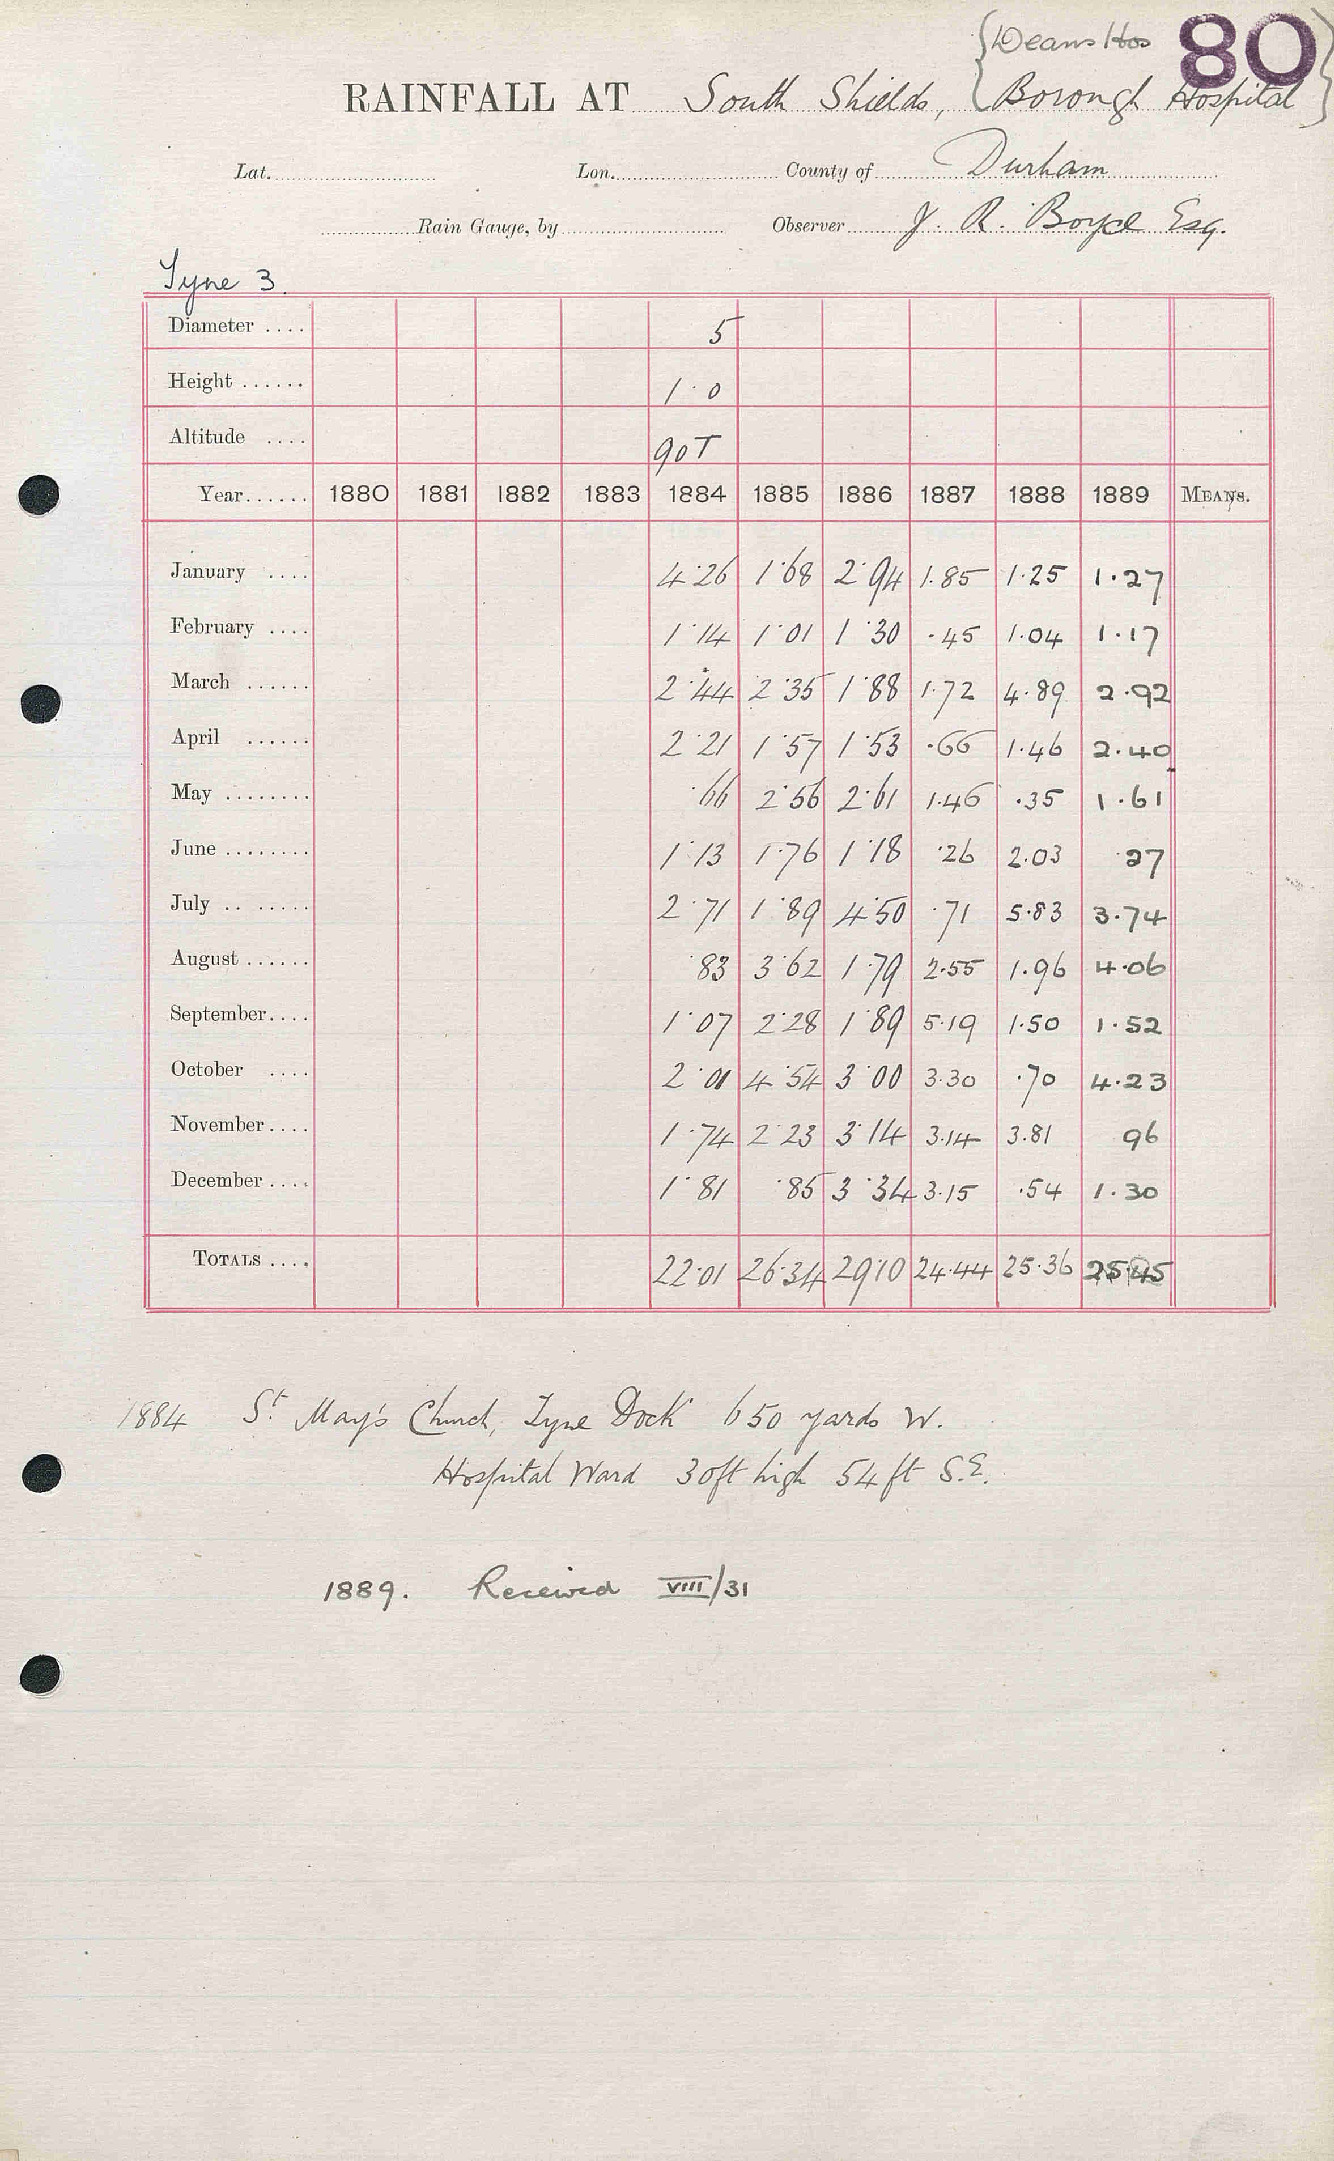 {Deans Hos 80
RAINFALL AT South Shields, {Borough Hospital}
Lat. Lon. County of Durham
Rain Gauge, by Observer J. R. Boyce Esq.
Tyne 3.
Diameter .... 5
Height ...... 1·0
Altitude .... 90T
Year...... 1880 1881 1882 1883 1884 1885 1886 1887 1888 1889 MEANS.
January .... 4·26 1·68 2·94 1.85 1.25 1.27
February .... 1·14 1·01 1·30 .45 1.04 1.17
March ...... 2·44 2·35 1·88 1.72 4.89 2.92
April ...... 2·21 1·57 1·53 .66 1.46 2.40
May ........ ·66 2·56 2·61 1.46 .35 1.61
June ........ 1·13 1·76 1·18 ·26 2.03 ·27
July .. ...... 2·71 1·89 4·50 .71 5.83 3.74
August ...... ·83 3·62 1·79 2.55 1.96 4.06
September.... 1·07 2·28 1·89 5.19 1.50 1.52
October .... 2·01 4·54 3·00 3.30 .70 4.23
November .... 1·74 2·23 3·14 3.14 3.81 96
December .... 1·81 ·85 3·34 3.15 .54 1.30
TOTALS .... 22·01 26·34 29·10 24.44 25.36 25.45
1884 St. Mary's Church, Tyne Dock 650 yards W.
Hospital Ward 30ft high 54ft S.E.
1889. Received VIII/31